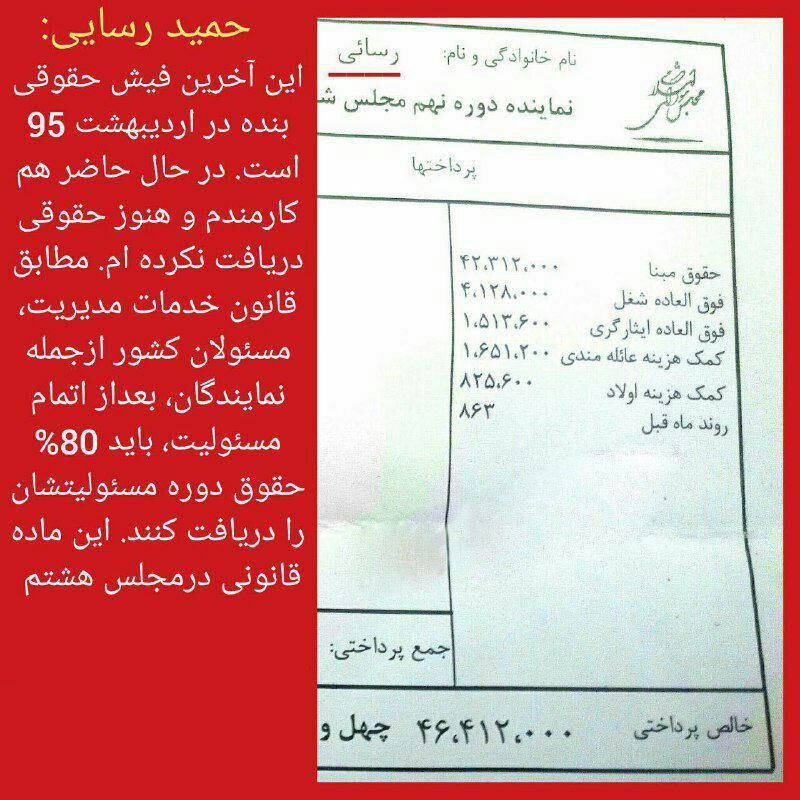 حمید رسایی:
این آخرین فیش حقوقی
بنده در اردیبهشت 95
است. در حال حاضر هم
کارمندم و هنوز حقوقی
دریافت نکرده ام. مطابق
قانون خدمات مدیریت،
مسئولان کشور ازجمله
نمایندگان، بعداز اتمام
مسئولیت، باید 80%
حقوق دوره مسئولیتشان
را دریافت کنند. این ماده
قانونی درمجلس هشتم
مجلس شورای اسلامی
نام خانوادگی و نام: رسائی
نماینده دوره نهم مجلس ش
پرداختها
حقوق مبنا ۴۲،۳۱۲،۰۰۰
فوق العاده شغل ۴،۱۲۸،۰۰۰
فوق العاده ایثارگری ۱،۵۱۳،۶۰۰
کمک هزینه عائله مندی ۱،۶۵۱،۲۰۰
کمک هزینه اولاد ۸۲۵،۶۰۰
روند ماه قبل ۸۶۳
جمع پرداختی:
خالص پرداختی ۴۶،۴۱۲،۰۰۰ چهل و